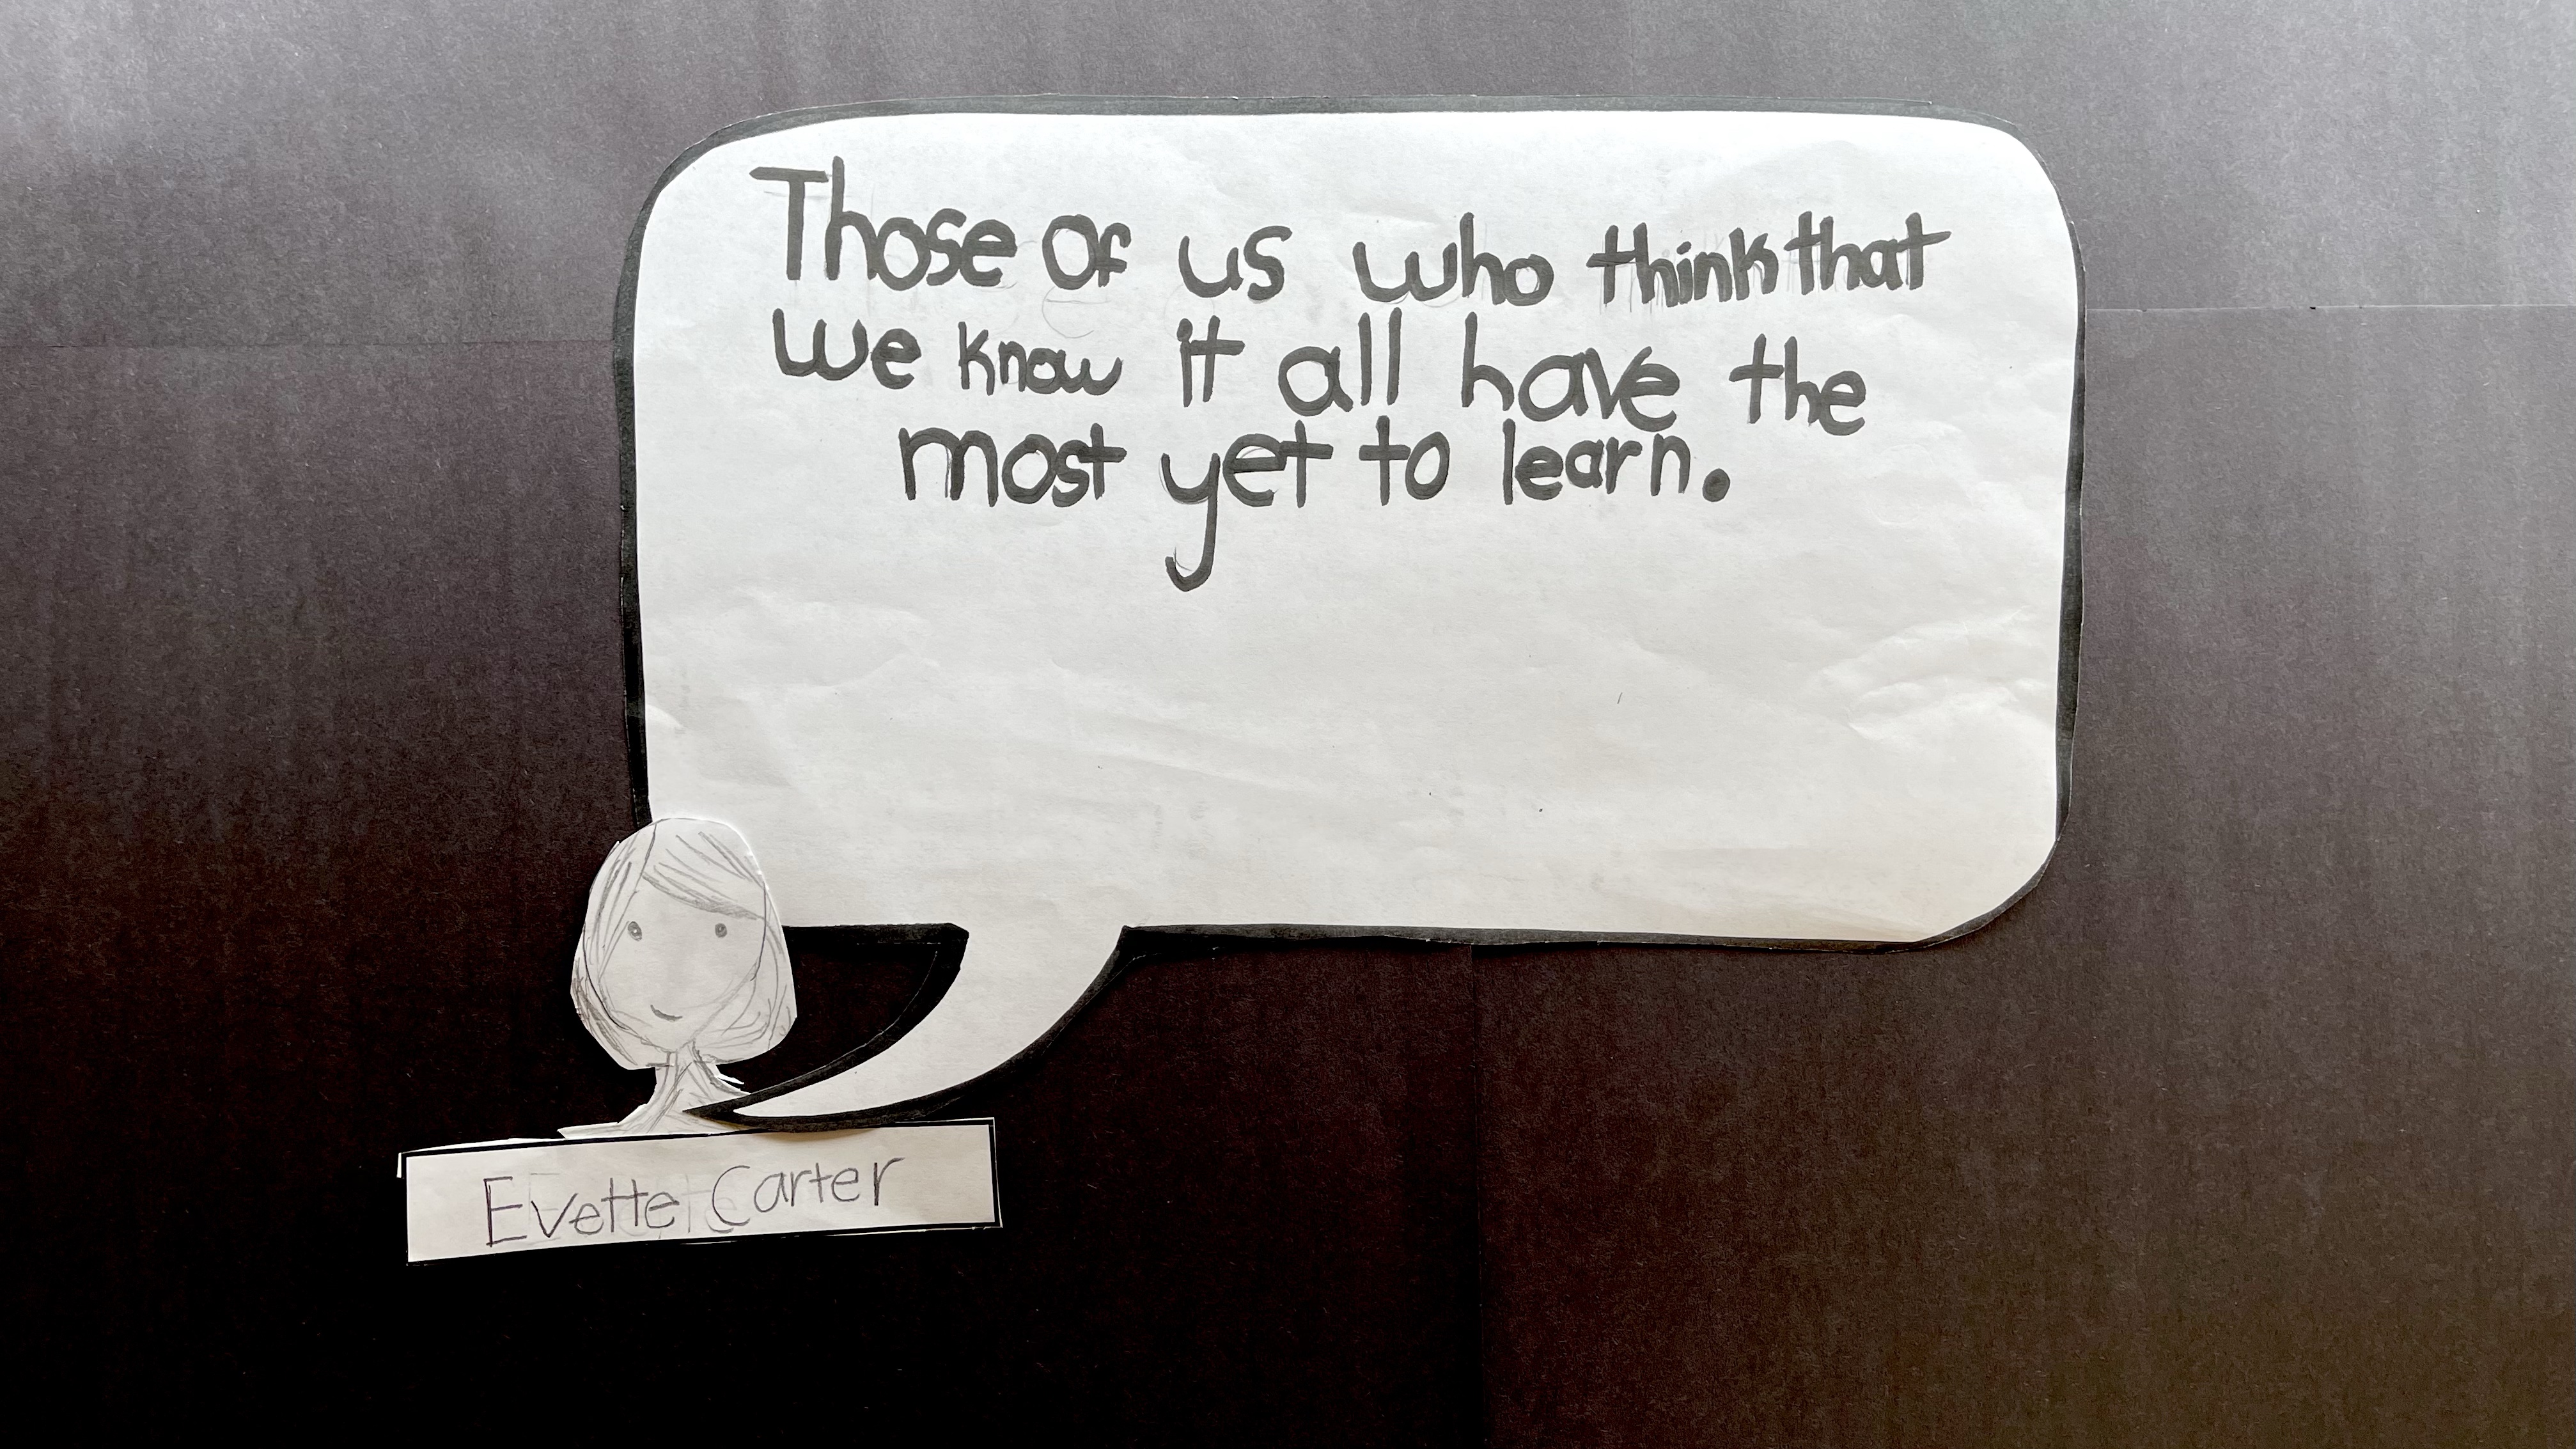 Those Of us who think that
we know it all have the
most yet to learn.
Evette Carter